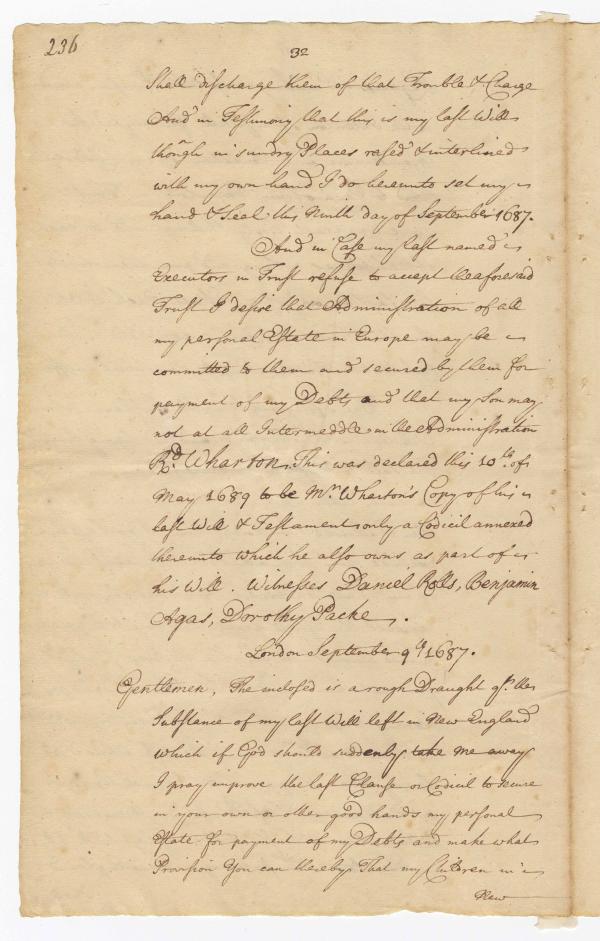 236
32
Shall discharge them of that Trouble & Charge
And in Testimony that this is my last Will
though in sundry Places rased & interlined
with my own hand I do hereunto set my
hand & Seal this Ninth day of September 1687.
And in Case my last named
Executors in Trust refuse to accept the aforesaid
Trust I desire that Administration of all
my personal Estate in Europe may be
committed to them and secured by them for
payment of my Debts and that my Son may
not at all Intermeddle in the Administration
Rd. Wharton. This was declared this 10th. of
May 1689 to be Mr. Wharton's Copy of his
last Will & Testament only a Codicil annexed
thereunto which he also owns as part of
his Will. Witnesses Daniel Rolls, Benjamin
Agas, Dorothy Packe.
London September 9th 1687.
Gentlemen, The inclosed is a rough Draught of the
Substance of my last Will left in New England
which if God should suddenly take me away
I pray improve the last Clause or Codicil to secure
in your own or other good hands my personal
Estate for payment of my Debts and make what
Provision You can thereby That my Children in
New